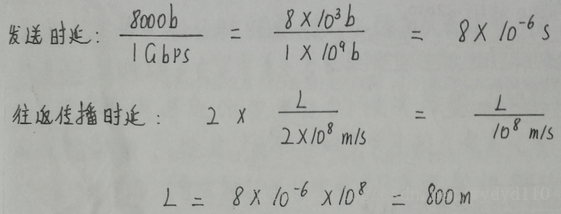 发送时延: 8000b / 1Gbps = 8 × 10³ b / 1 × 10⁹ b = 8 × 10⁻⁶ s
往返传播时延: 2 × L / 2×10⁸ m/s = L / 10⁸ m/s
L = 8 × 10⁻⁶ × 10⁸ = 800 m